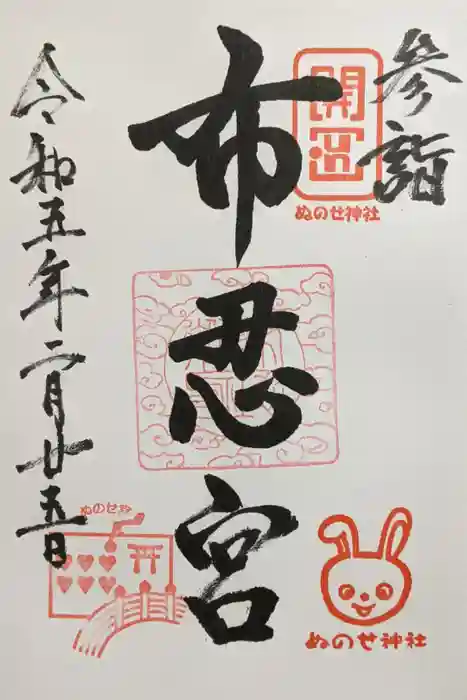 参詣
開運
ぬのせ神社
布忍宮
令和五年二月廿五日
ぬのせ神社